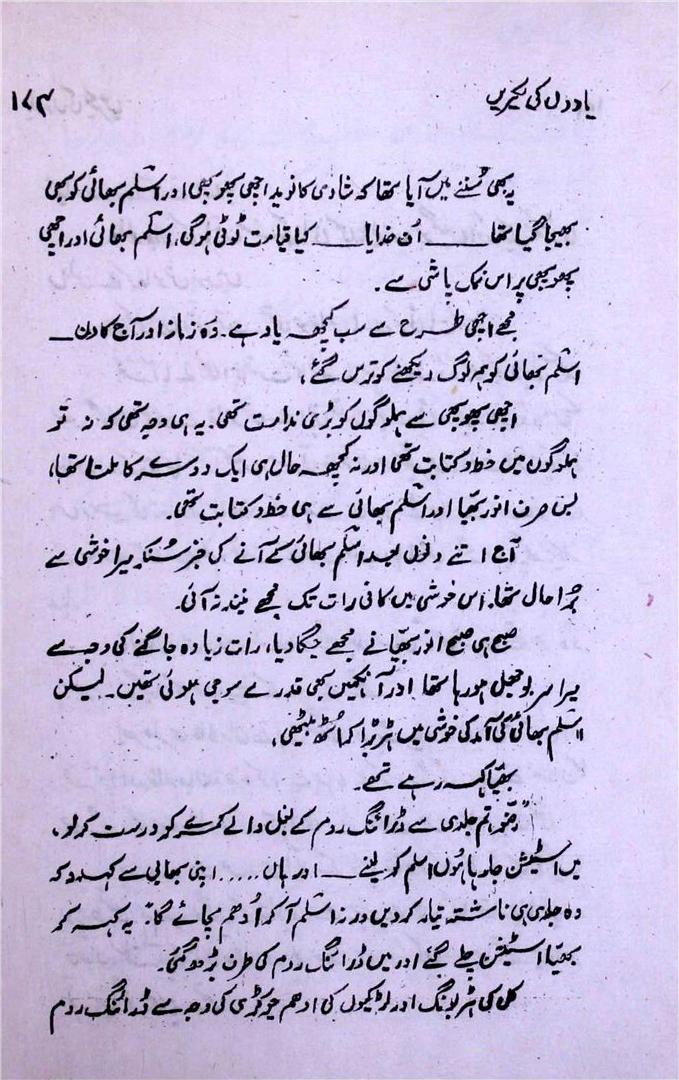 یادوں کی لکیریں
۱۷۴
یہ بھی سُننے میں آیا تھا کہ شادی کا نوید اچھی پھوپھی اور اسلم بھائی کو بھی
بھیجا گیا تھا ــــ اُف خدایا ــــ کیا قیامت ٹوٹی ہوگی، اسلم بھائی اور اچھی
پھوپھی پر اس نمک پاشی سے ۔
مجھے اچھی طرح سے سب کچھ یاد ہے ۔ وہ زمانہ اور آج کا دن ــــ
اسلم بھائی کو ہم لوگ دیکھنے کو ترس گئے ،
اچھی پھوپھی سے ہملوگوں کو بڑی ندامت تھی ۔ یہ ہی وجہ تھی کہ نہ تو
ہملوگوں میں خط و کتابت تھی اور نہ کچھ حال ہی ایک دوسرے کا ملتا تھا ،
بس صرف انور بھیّا اور اسلم بھائی سے ہی خط و کتابت تھی ۔
آج اتنے دنوں بعد اسلم بھائی کے آنے کی خبر سُنکر میرا خوشی سے
بُرا حال تھا ۔ اس خوشی میں کافی رات تک مجھے نیند نہ آئی ۔
صبح ہی صبح انور بھیّا نے مجھے جگا دیا ، رات زیادہ جاگنے کی وجہ سے
میرا سر بوجھل ہو رہا تھا اور آنکھیں بھی قدرے سوجی ہوئی تھیں ۔ لیکن
اسلم بھائی کی آمد کی خوشی میں ہڑبڑا کر اُٹھ بیٹھی ،
بھیّا کہہ رہے تھے ۔
تم جلدی سے ڈرائنگ روم کے بغل والے کمرے کو درست کر لو ،
میں اسٹیشن جا رہا ہوں اسلم کو لینے ــــ اور ہاں ..... اپنی بھابی سے کہہ دو کہ
وہ جلدی ہی ناشتہ تیار کر دیں ورنہ اسلم آ کر اُدھم مچائے گا" یہ کہہ کر
بھیّا اسٹیشن چلے گئے اور میں ڈرائنگ روم کی طرف بڑھ گئی ۔
کل کی ہڑبونگ اور لڑکیوں کی ادھم چوکڑی کی وجہ سے ڈرائنگ روم